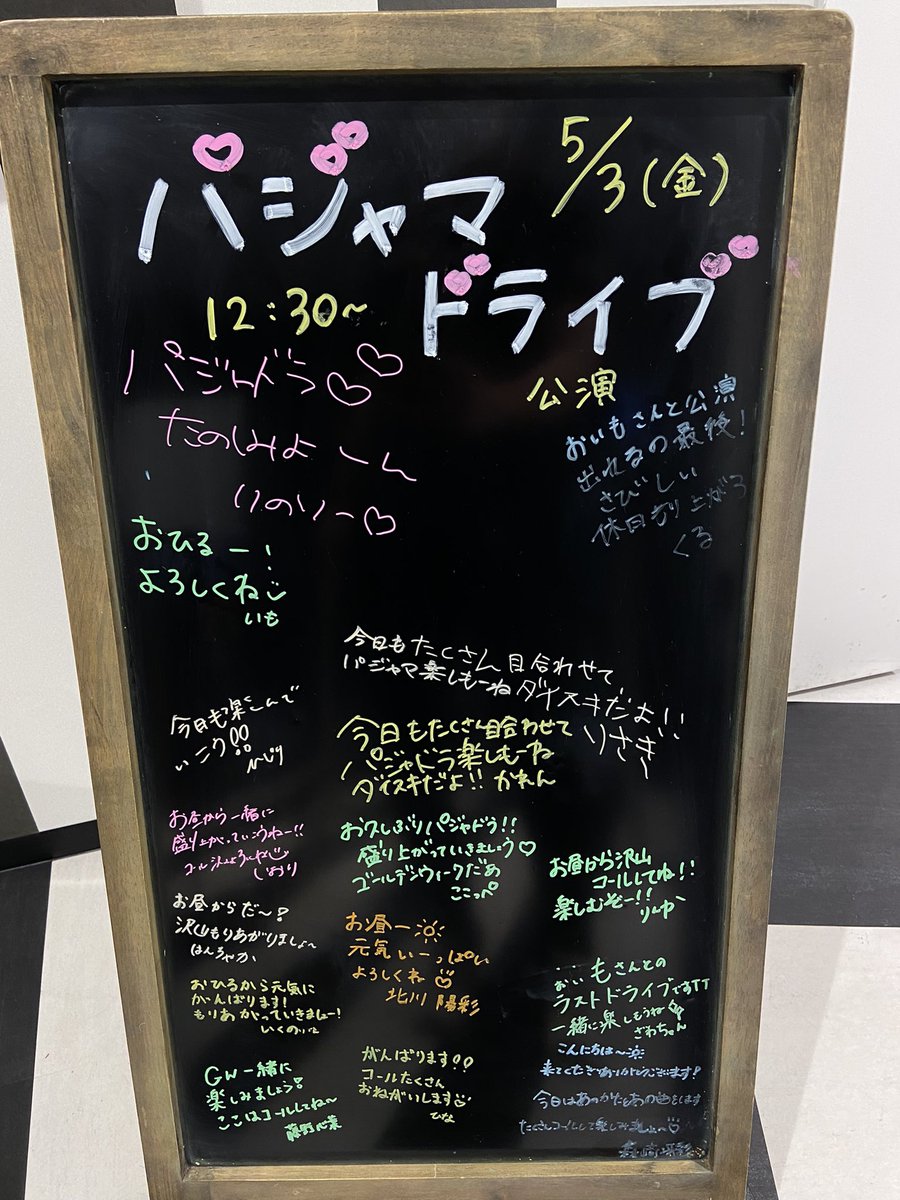 パジャマ
ドライブ
5/3(金)
12:30~
公演
パジャドラ♡♡
たのしみよーん
りのりー♡
おいもさんと公演
出れるの最後!
さびしい
休日 上がろ
くる
おひるー!
よろしくね
いも
今日もたくさん目合わせて
パジャマ楽しもーね ダイスキだよ
りさき
今日も楽しんで
いこう!!
今日もたくさん目合わせて
パジャドラ楽しむーね
ダイスキだよ!! かれん
お昼から一緒に
盛り上がっていこうねー!!
コール よろしくね
しおり
お久しぶりパジャドラ!!
盛り上がっていきましょう♡
ゴールデンウィークだぁ
ここっぺ
お昼から沢山
コールしてね!!
楽しむぞー!!
りんか
お昼からだ〜!
沢山もりあがりましょ〜
はんちゃか
お昼ー☀
元気いーっぱい
よろしくね
北川 陽彩
おひるから元気に
がんばります!
もりあがっていきましょー!
いくの
お…もさんとの
ラストドライブですTT
一緒に楽しもうね
ざわちゃん
GW一緒に
楽しみましょう!
ここはコールしてね〜
藤野心葉
がんばります!!
コールたくさん
おねがいします
ひな
こんにちは〜☀
来てくださりありがとうございます!
今日はあのかたもあの曲をします
たくさんコールして楽しみましょ〜♡